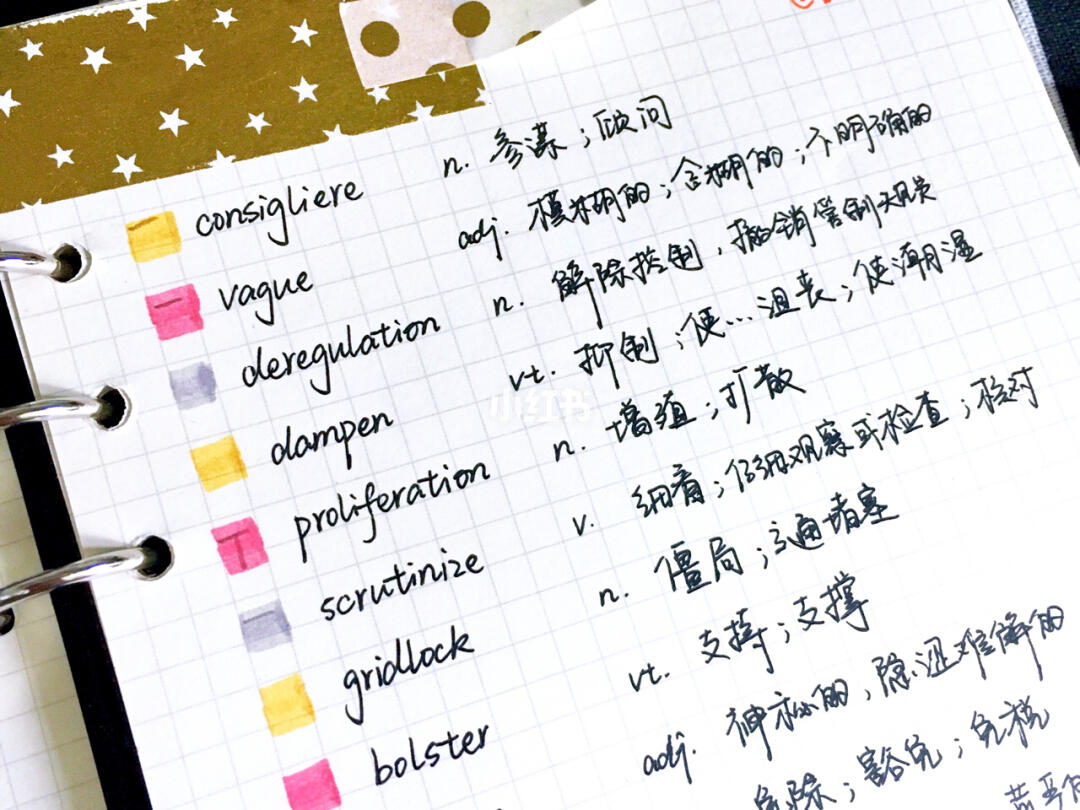 consigliere n. 参谋；顾问
vague adj. 模糊的；含糊的；不明确的
deregulation n. 解除控制，撤销管制规定
dampen vt. 抑制；使…沮丧；使潮湿
proliferation n. 增殖；扩散
scrutinize v. 细看；仔细观察或检查；核对
gridlock n. 僵局；交通堵塞
bolster vt. 支持；支撑
adj. 神秘的，隐晦难解的
免除；豁免；免税
小红书